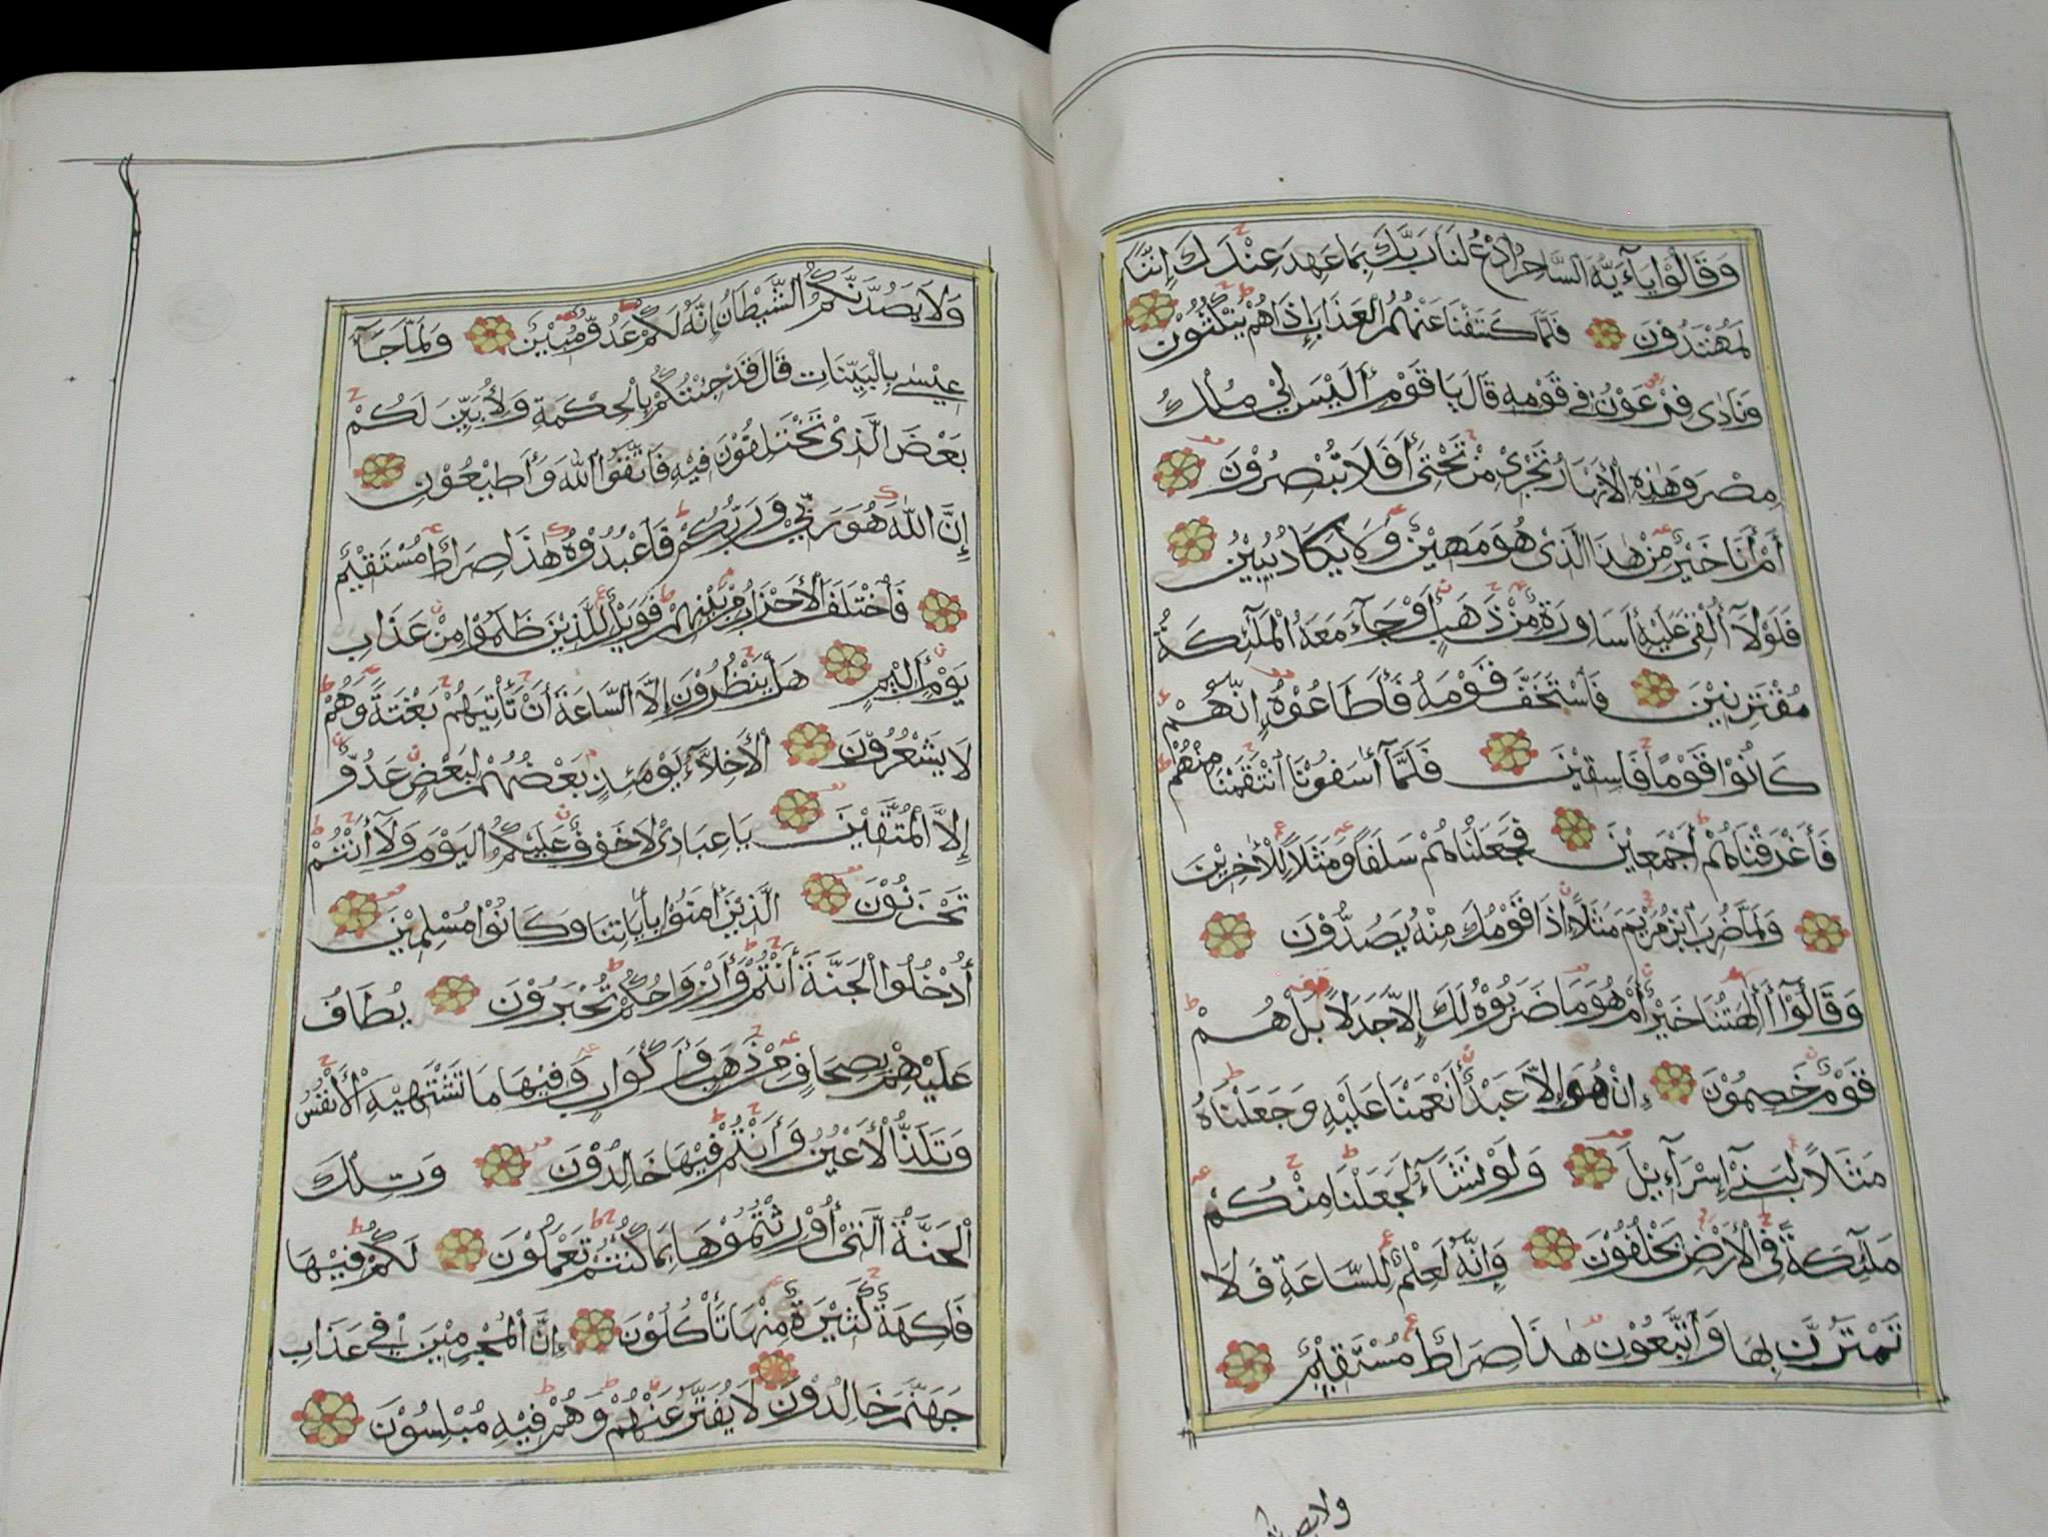 وَقَالُوْا يَآءَيُّهَ السَّاحِرُ ادْعُ لَنَا رَبَّكَ بِمَا عَهِدَ عِنْدَكَ اِنَّنَا
لَمُهْتَدُوْنَ فَلَمَّا كَشَفْنَا عَنْهُمُ الْعَذَابَ إِذَا هُمْ يَنْكُثُوْنَ
وَنَادٰى فِرْعَوْنُ فِيْ قَوْمِهِ قَالَ يَا قَوْمِ أَلَيْسَ لِيْ مُلْكُ
مِصْرَ وَهٰذِهِ الْأَنْهَارُ تَجْرِيْ مِنْ تَحْتِيْ أَفَلَا تُبْصِرُوْنَ
أَمْ أَنَا خَيْرٌ مِنْ هٰذَا الَّذِيْ هُوَ مَهِيْنٌ وَلَا يَكَادُ يُبِيْنُ
فَلَوْلَآ أُلْقِيَ عَلَيْهِ أَسَاوِرَةٌ مِنْ ذَهَبٍ أَوْ جَآءَ مَعَهُ الْمَلٰٓئِكَةُ
مُقْتَرِنِيْنَ فَاسْتَخَفَّ قَوْمَهُ فَأَطَاعُوْهُ إِنَّهُمْ
كَانُوْا قَوْمًا فَاسِقِيْنَ فَلَمَّآ أٰسَفُوْنَا انْتَقَمْنَا مِنْهُمْ
فَأَغْرَقْنَاهُمْ أَجْمَعِيْنَ فَجَعَلْنَاهُمْ سَلَفًا وَمَثَلًا لِلْأٰخِرِيْنَ
وَلَمَّا ضُرِبَ ابْنُ مَرْيَمَ مَثَلًا إِذَا قَوْمُكَ مِنْهُ يَصُدُّوْنَ
وَقَالُوْآ أَأٰلِهَتُنَا خَيْرٌ أَمْ هُوَ مَا ضَرَبُوْهُ لَكَ إِلَّا جَدَلًا بَلْ هُمْ
قَوْمٌ خَصِمُوْنَ إِنْ هُوَ إِلَّا عَبْدٌ أَنْعَمْنَا عَلَيْهِ وَجَعَلْنَاهُ
مَثَلًا لِبَنِيْٓ إِسْرَآءِيْلَ وَلَوْ نَشَآءُ لَجَعَلْنَا مِنْكُمْ
مَلٰٓئِكَةً فِي الْأَرْضِ يَخْلُفُوْنَ وَإِنَّهُ لَعِلْمٌ لِلسَّاعَةِ فَلَا
تَمْتَرُنَّ بِهَا وَاتَّبِعُوْنِ هٰذَا صِرَاطٌ مُسْتَقِيْمٌ
وَلَا يَصُدَّنَّكُمُ الشَّيْطَانُ إِنَّهُ لَكُمْ عَدُوٌّ مُّبِيْنٌ وَلَمَّا جَآءَ
عِيْسٰى بِالْبَيِّنَاتِ قَالَ قَدْ جِئْتُكُمْ بِالْحِكْمَةِ وَلِأُبَيِّنَ لَكُمْ
بَعْضَ الَّذِيْ تَخْتَلِفُوْنَ فِيْهِ فَاتَّقُوا اللّٰهَ وَأَطِيْعُوْنِ
إِنَّ اللّٰهَ هُوَ رَبِّيْ وَرَبُّكُمْ فَاعْبُدُوْهُ هٰذَا صِرَاطٌ مُسْتَقِيْمٌ
فَاخْتَلَفَ الْأَحْزَابُ مِنْ بَيْنِهِمْ فَوَيْلٌ لِلَّذِيْنَ ظَلَمُوْا مِنْ عَذَابِ
يَوْمٍ أَلِيْمٍ هَلْ يَنْظُرُوْنَ إِلَّا السَّاعَةَ أَنْ تَأْتِيَهُمْ بَغْتَةً وَهُمْ
لَا يَشْعُرُوْنَ الْأَخِلَّآءُ يَوْمَئِذٍ بَعْضُهُمْ لِبَعْضٍ عَدُوٌّ
إِلَّا الْمُتَّقِيْنَ يَا عِبَادِيْ لَا خَوْفٌ عَلَيْكُمُ الْيَوْمَ وَلَآ أَنْتُمْ
تَحْزَنُوْنَ الَّذِيْنَ أٰمَنُوْا بِأٰيَاتِنَا وَكَانُوْا مُسْلِمِيْنَ
أُدْخُلُوا الْجَنَّةَ أَنْتُمْ وَأَزْوَاجُكُمْ تُحْبَرُوْنَ يُطَافُ
عَلَيْهِمْ بِصِحَافٍ مِنْ ذَهَبٍ وَأَكْوَابٍ وَفِيْهَا مَا تَشْتَهِيْهِ الْأَنْفُسُ
وَتَلَذُّ الْأَعْيُنُ وَأَنْتُمْ فِيْهَا خَالِدُوْنَ وَتِلْكَ
الْجَنَّةُ الَّتِيْ أُوْرِثْتُمُوْهَا بِمَا كُنْتُمْ تَعْمَلُوْنَ لَكُمْ فِيْهَا
فَاكِهَةٌ كَثِيْرَةٌ مِنْهَا تَأْكُلُوْنَ إِنَّ الْمُجْرِمِيْنَ فِيْ عَذَابِ
جَهَنَّمَ خَالِدُوْنَ لَا يُفَتَّرُ عَنْهُمْ وَهُمْ فِيْهِ مُبْلِسُوْنَ